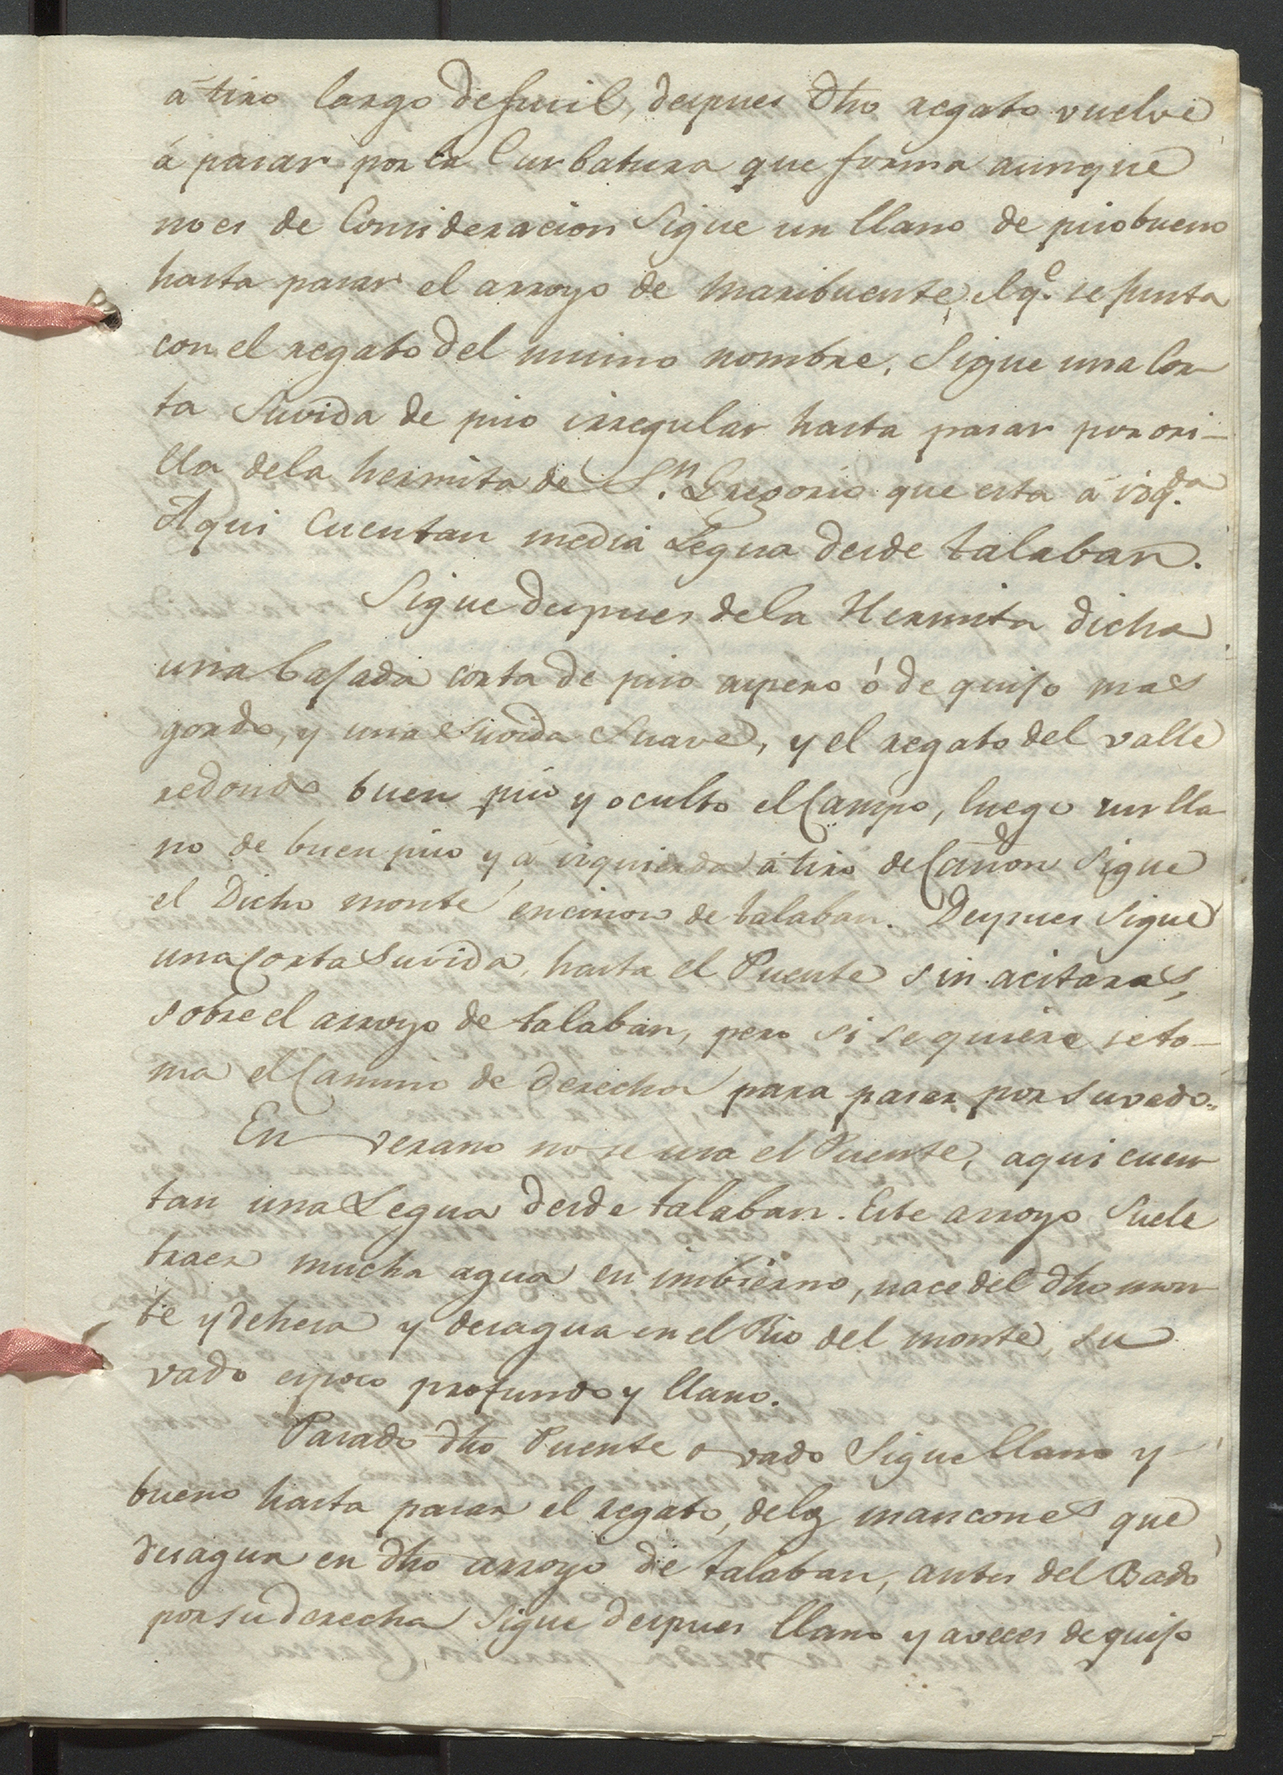 á tiro largo de fusil, despues dho regato vuelve
á pasar por la Curbatura que forma aunque
no es de Consideracion Sigue un llano de piso bueno
hasta pasar el arroyo de Maribuente, el qe. se junta
con el regato del mismo nombre, Sigue una Cor-
ta Suvida de piso irregular hasta pasar por ori-
lla de la hermita de Sn. Gregorio que esta á izqda.
Aqui Cuentan media Legua desde talaban.
Sigue despues de la Hermita dicha
una bajada corta de piso aspero ó de quijo mas
gordo, y una suvida suave, y el regato del valle
redondo buen piso y oculto el Campo, luego un lla
no de buen piso y á izquierda á tiro de Cañon Sigue
el Dicho monte encinoso de talaban. Despues Sigue
una Corta Suvida, hasta el Puente sin acitaras,
sobre el arroyo de talaban, pero si se quiere se to-
ma el Camino de Derecha para pasar por su vado.
En verano no se usa el Puente, aqui cuen
tan una Legua desde talaban. Este arroyo Suele
traer mucha agua en imbierno, nace del dho mon
te y dehesa y desagua en el Rio del monte, su
vado es poco profundo y llano.
Pasado dho Puente o vado Sigue llano y
bueno hasta pasar el regato, de los mancones que
desagua en dho arroyo de talaban, antes del Bado
por su derecha Sigue despues llano y aveces de quijo